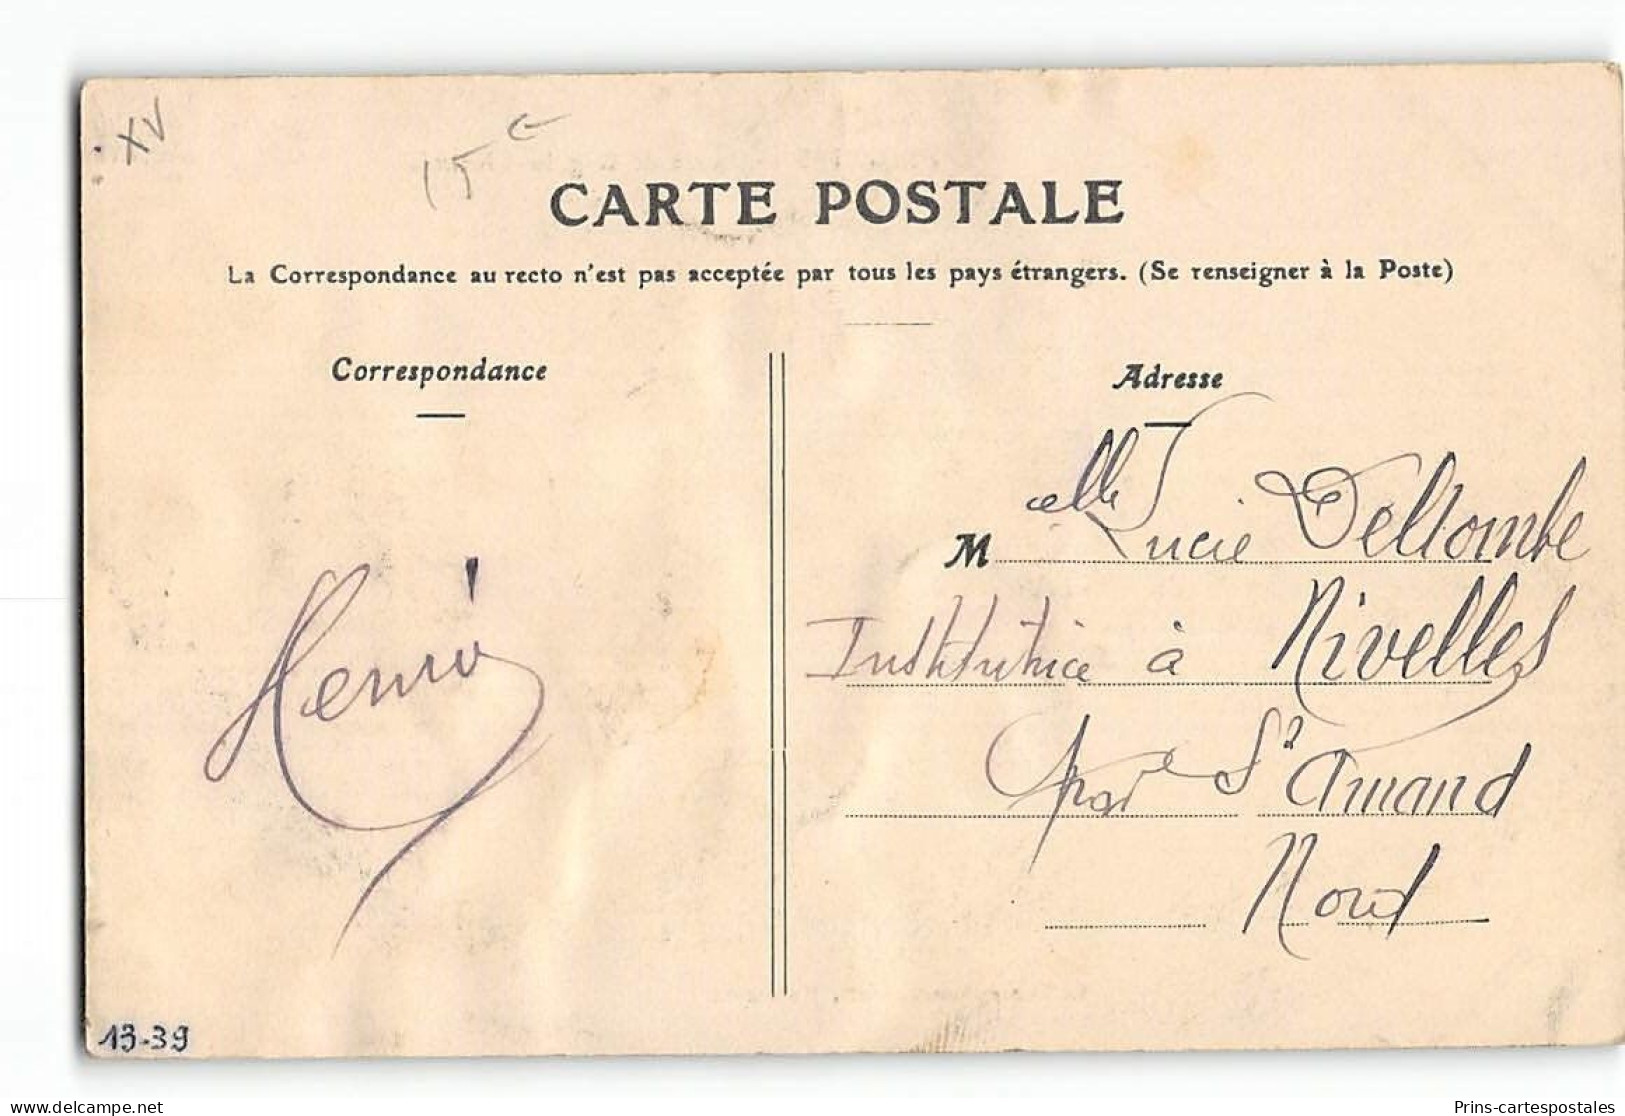 XV
15 €
CARTE POSTALE
La Correspondance au recto n'est pas acceptée par tous les pays étrangers. (Se renseigner à la Poste)
Correspondance
Adresse
Melle Lucie Deltombe
Institutrice à Nivelles
par St Amand
Nord
Henri
13-39
www.delcampe.net
Prins-cartespostales